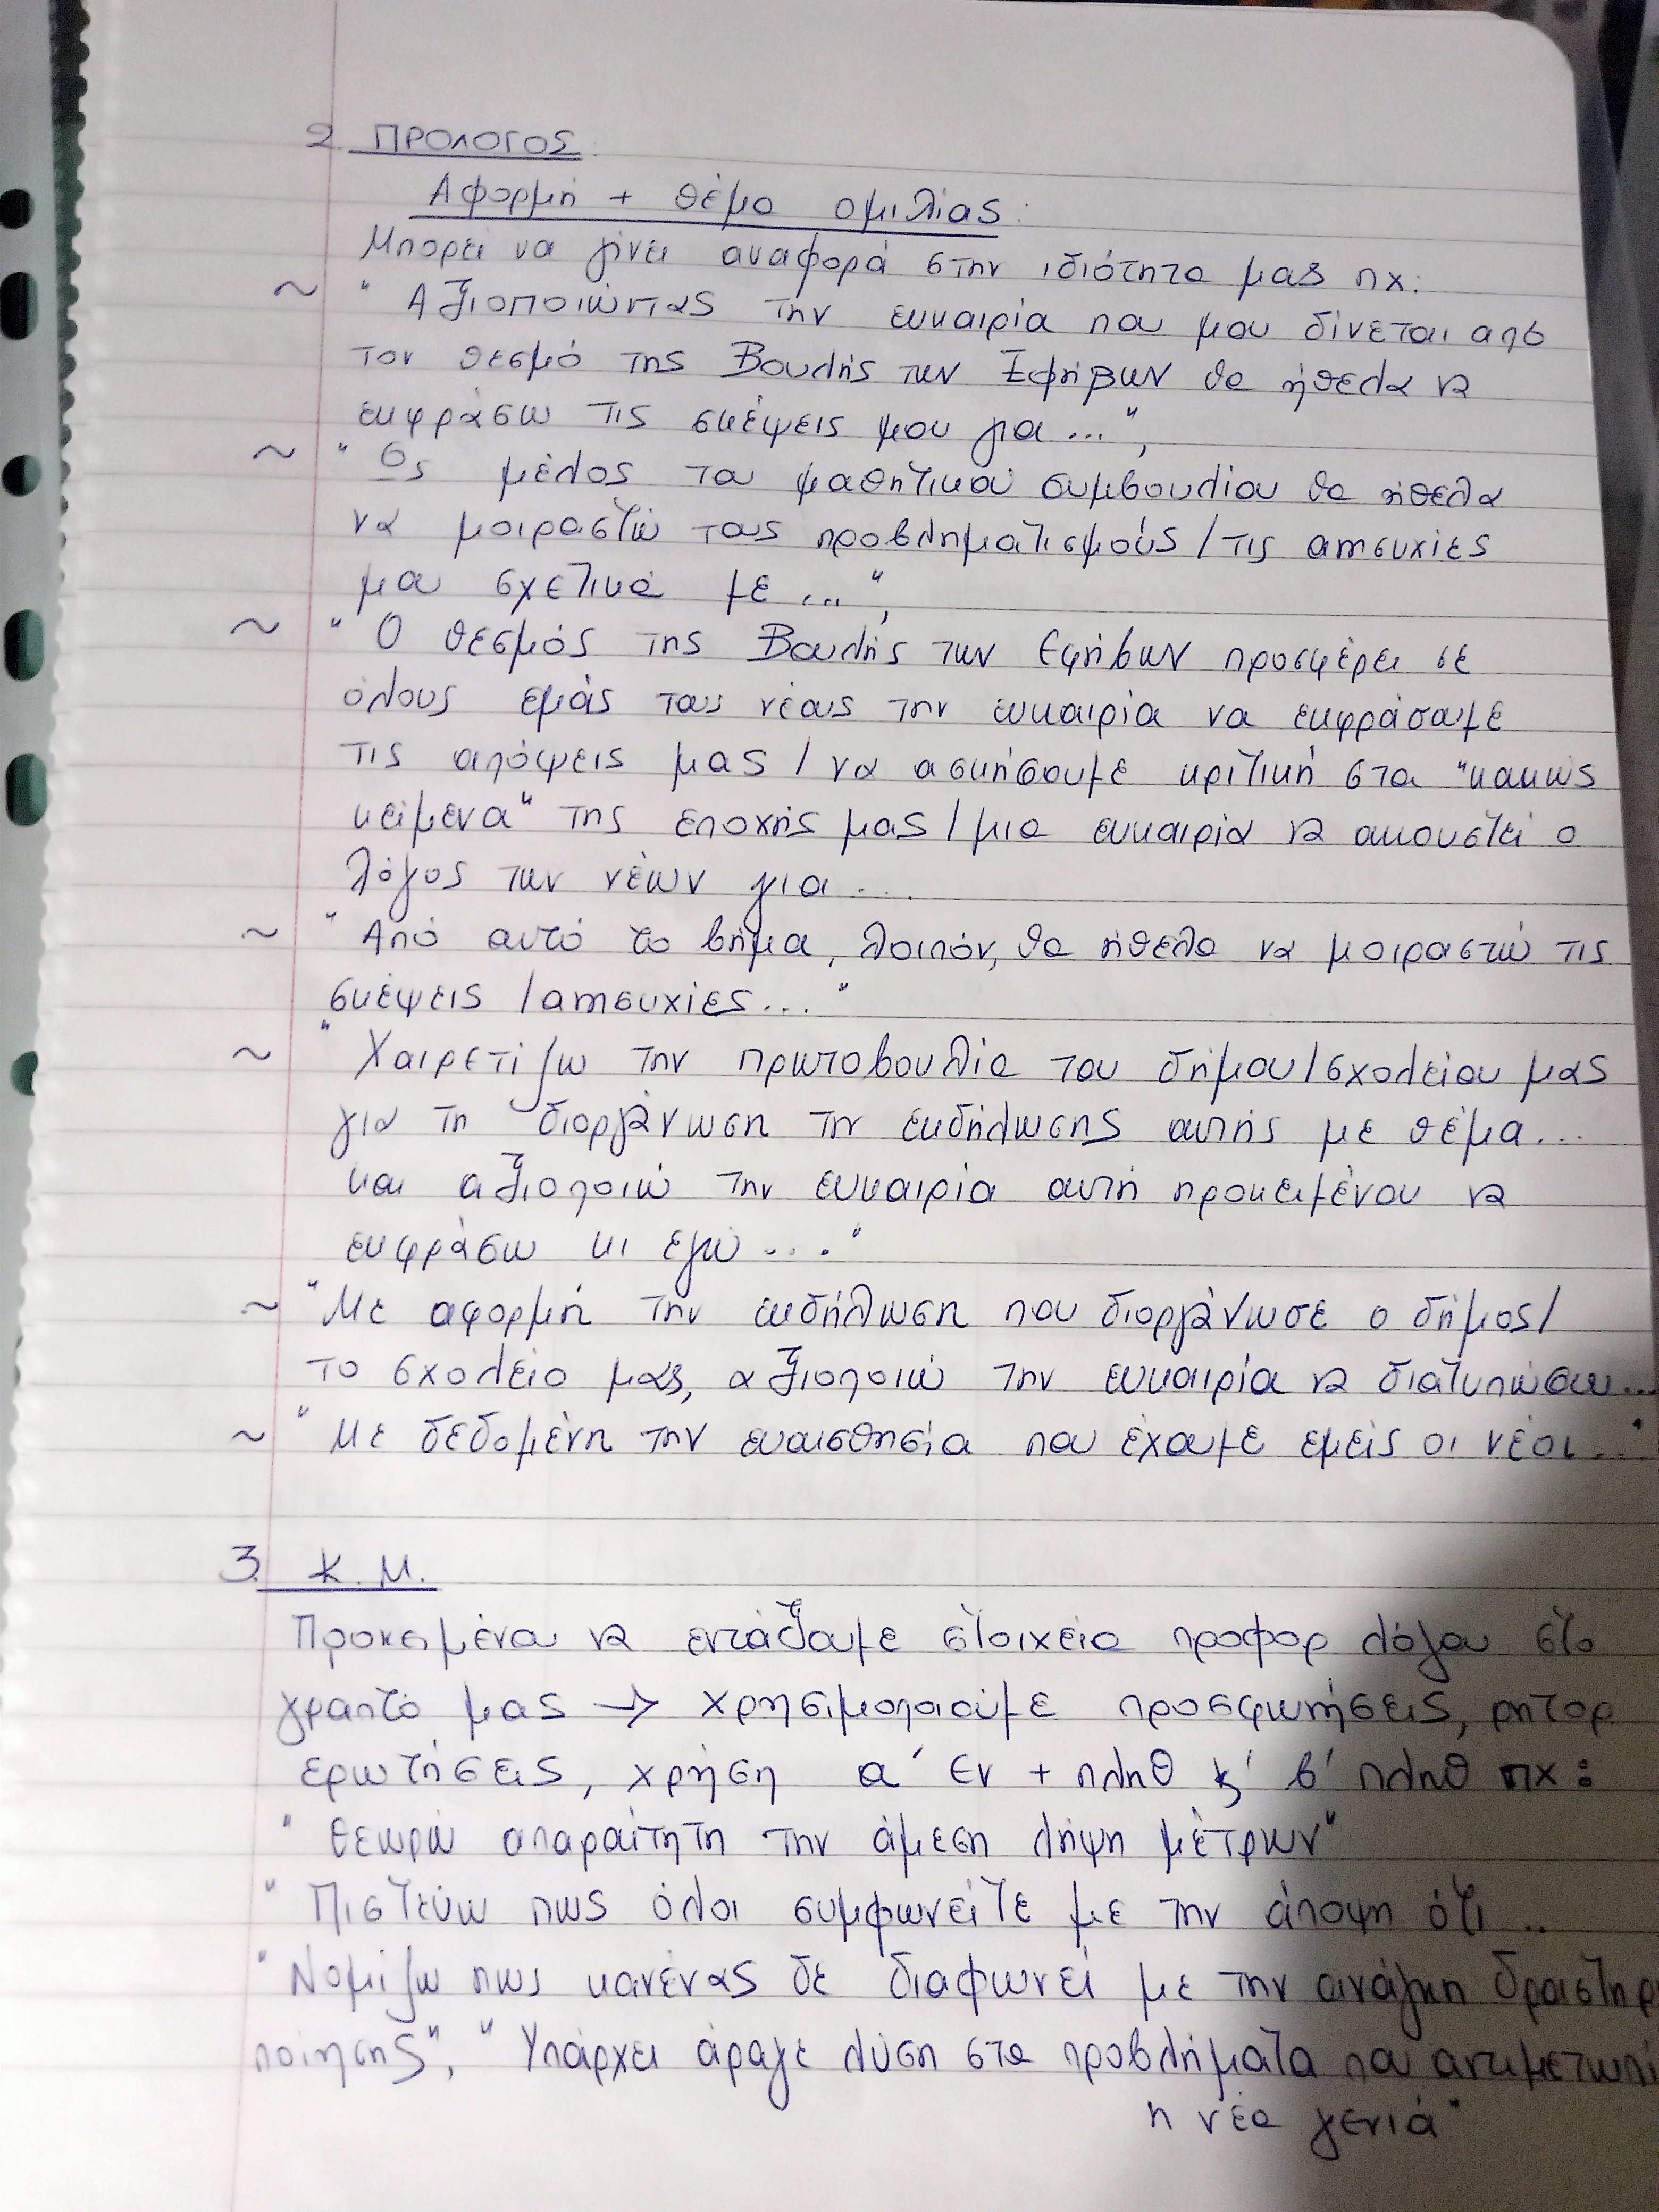 2. ΠΡΟΛΟΓΟΣ:
Αφορμή + θέμα ομιλίας:
Μπορεί να γίνει αναφορά στην ιδιότητα μας πχ:
~ "Αξιοποιώντας την ευκαιρία που μου δίνεται από
τον θεσμό της Βουλής των Εφήβων θα ήθελα να
εκφράσω τις σκέψεις μου για...",
~ "Ως μέλος του μαθητικού συμβουλίου θα ήθελα
να μοιραστώ τους προβληματισμούς/τις ανησυχίες
μου σχετικά με ...",
~ "Ο θεσμός της Βουλής των Εφήβων προσφέρει σε
όλους εμάς τους νέους την ευκαιρία να εκφράσουμε
τις απόψεις μας / να ασκήσουμε κριτική στα "κακώς
κείμενα" της εποχής μας/μια ευκαιρία να ακουστεί ο
λόγος των νέων για...
~ "Από αυτό το βήμα, λοιπόν, θα ήθελα να μοιραστώ τις
σκέψεις /ανησυχίες..."
~ "Χαιρετίζω την πρωτοβουλία του δήμου/σχολείου μας
για τη διοργάνωση της εκδήλωσης αυτής με θέμα...
και αξιοποιώ την ευκαιρία αυτή προκειμένου να
εκφράσω κι εγώ...."
~ "Με αφορμή την εκδήλωση που διοργάνωσε ο δήμος/
το σχολείο μας, αξιοποιώ την ευκαιρία να διατυπώσω...
~ "Με δεδομένη την ευαισθησία που έχουμε εμείς οι νέοι..."
3. Κ.Μ.
Προκειμένου να εντάξουμε στοιχεία προφορ λόγου στο
γραπτό μας → χρησιμοποιούμε προσφωνήσεις, ρητορ.
ερωτήσεις, χρήση α' εν + πληθ κ' β' πληθ πχ:
"Θεωρώ απαραίτητη την άμεση λήψη μέτρων"
"Πιστεύω πως όλοι συμφωνείτε με την άποψη ότι ..
"Νομίζω πως κανένας δε διαφωνεί με την ανάγκη δραστηρ
ποίησης", "Υπάρχει άραγε λύση στα προβλήματα που αντιμετωπί
η νέα γενιά"